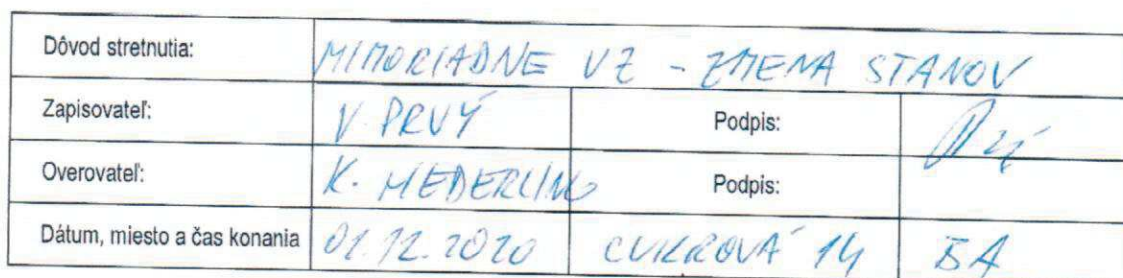 Dôvod stretnutia: MIMORIADNE VZ - ZMENA STANOV
Zapisovateľ: V. PRVÝ Podpis:
Overovateľ: K. MEDERLING Podpis:
Dátum, miesto a čas konania 01.12.2020 CUKROVÁ 14 BA